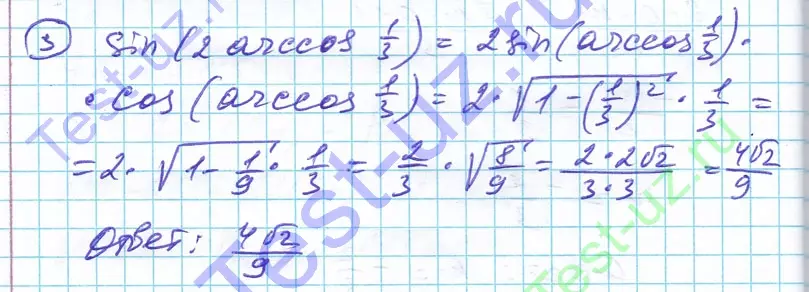 3) sin(2 arccos 1/3) = 2 sin(arccos 1/3) ·
· cos(arccos 1/3) = 2 · √(1 - (1/3)²) · 1/3 =
= 2 · √(1 - 1/9) · 1/3 = 2/3 · √(8/9) = (2 · 2√2)/(3 · 3) = 4√2/9
Ответ: 4√2/9
Test-uz.ru
Test-uz.ru
Test-uz.ru